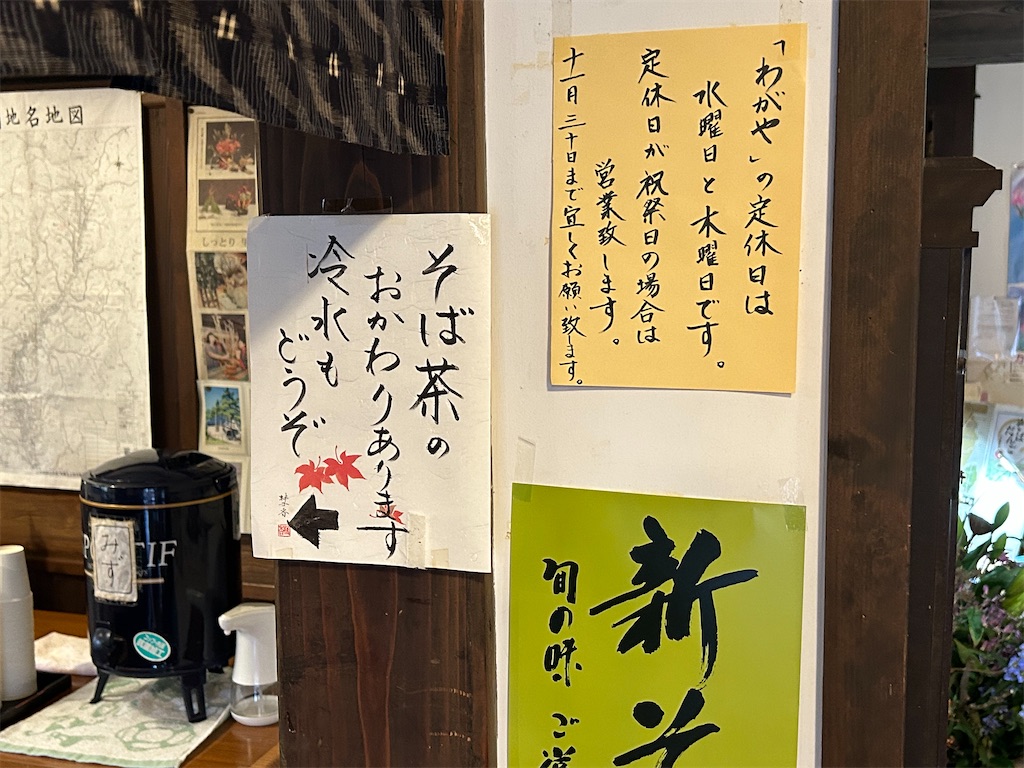 「わがや」の定休日は
水曜日と木曜日です。
定休日が祝祭日の場合は
営業致します。
十一月三十日まで宜しくお願い致します。
そば茶の
おかわりあります
冷水も
どうぞ
新そ
旬の味 ご
地名地図
しっとり
みず